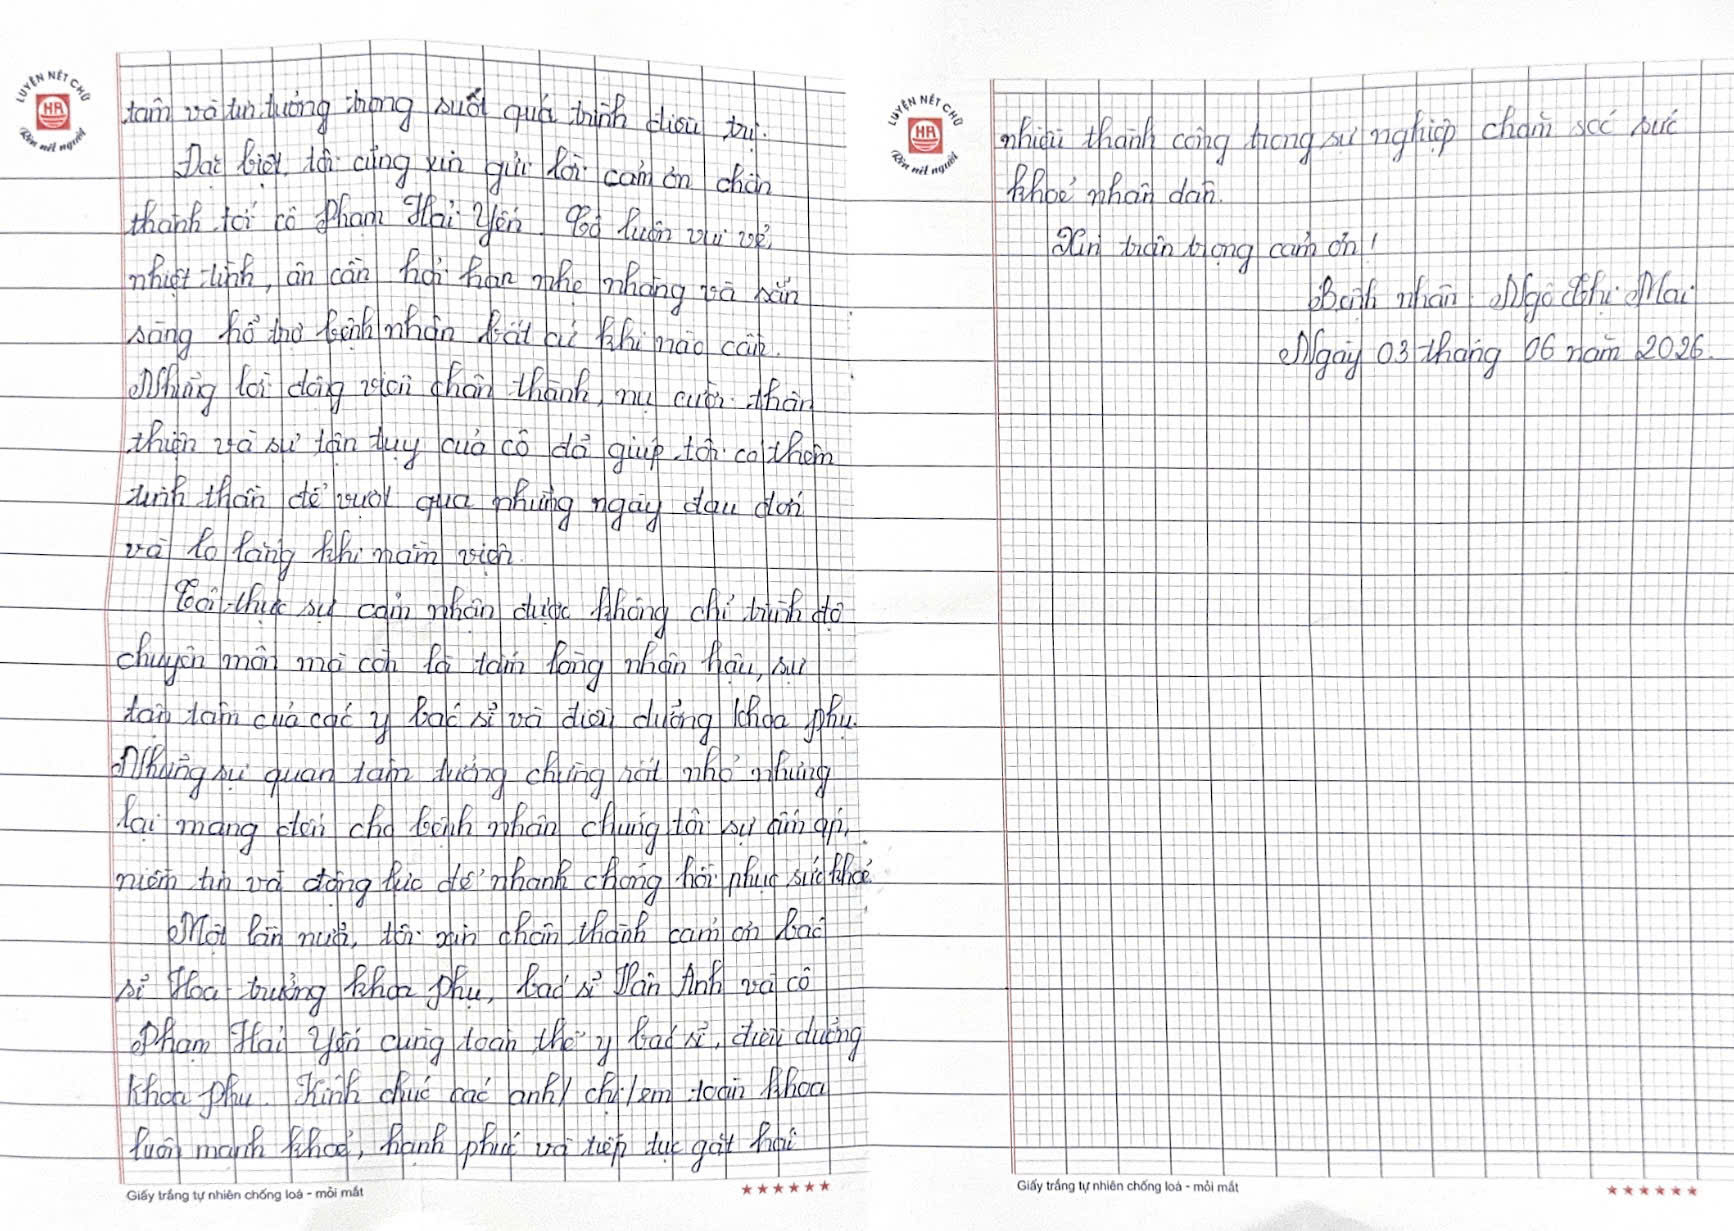 LUYỆN NÉT CHỮ
HA
Rèn nết người
tâm và tin tưởng trong suốt quá trình điều trị.
Đặc biệt, tôi cũng xin gửi lời cảm ơn chân
thành tới cô Phạm Hải Yến. Cô luôn vui vẻ,
nhiệt tình, ân cần hỏi han nhẹ nhàng và sẵn
sàng hỗ trợ bệnh nhân bất cứ khi nào cần.
Những lời động viên chân thành, nụ cười thân
thiện và sự tận tụy của cô đã giúp tôi có thêm
tinh thần để vượt qua những ngày đau đớn
và lo lắng khi nằm viện.
Tôi thực sự cảm nhận được không chỉ trình độ
chuyên môn mà còn là tấm lòng nhân hậu, sự
tận tâm của các y bác sĩ và điều dưỡng khoa phụ.
Những sự quan tâm tưởng chừng rất nhỏ nhưng
lại mang đến cho bệnh nhân chúng tôi sự ấm áp,
niềm tin và động lực để nhanh chóng hồi phục sức khoẻ.
Một lần nữa, tôi xin chân thành cảm ơn bác
sĩ Hoa trưởng khoa phụ, bác sĩ Vân Anh và cô
Phạm Hải Yến cùng toàn thể y bác sĩ, điều dưỡng
khoa phụ. Kính chúc các anh/ chị/em toàn khoa
luôn mạnh khoẻ, hạnh phúc và tiếp tục gặt hái
Giấy trắng tự nhiên chống loá - mỏi mắt
LUYỆN NÉT CHỮ
HA
Rèn nết người
nhiều thành công trong sự nghiệp chăm sóc sức
khoẻ nhân dân.
Xin trân trọng cảm ơn!
Bệnh nhân: Ngô Thị Mai
Ngày 03 tháng 06 năm 2026.
Giấy trắng tự nhiên chống loá - mỏi mắt